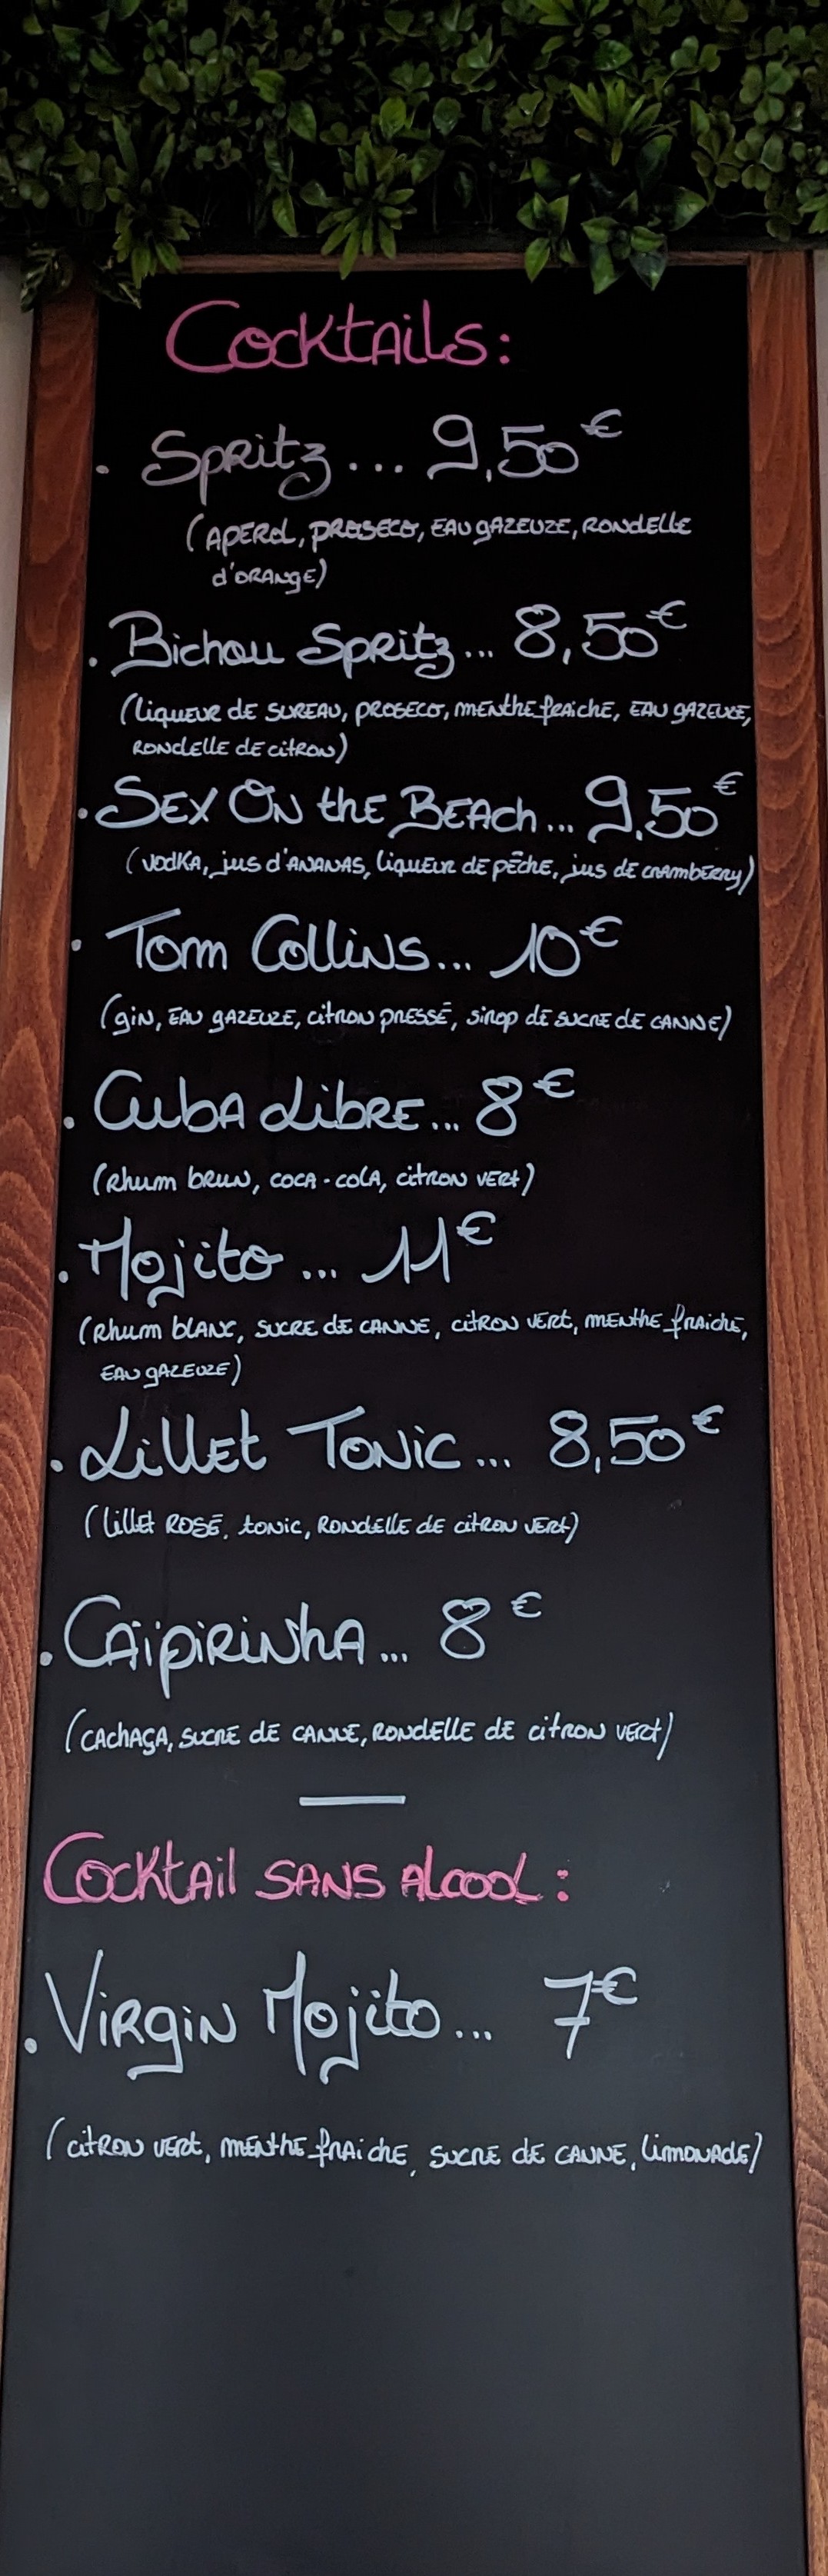 Cocktails:
. Spritz... 9,50€
(Aperol, proseco, eau gazeuze, rondelle
d'orange)
. Bichou Spritz... 8,50€
(liqueur de sureau, proseco, menthe fraiche, eau gazeuze,
rondelle de citron)
. Sex On the Beach... 9,50€
(vodka, jus d'ananas, liqueur de pêche, jus de cramberry)
. Tom Collins... 10€
(gin, eau gazeuze, citron pressé, sirop de sucre de canne)
. Cuba Libre... 8€
(Rhum brun, coca-cola, citron vert)
. Mojito... 11€
(Rhum blanc, sucre de canne, citron vert, menthe fraiche,
eau gazeuze)
. Lillet Tonic... 8,50€
(lillet rosé, tonic, rondelle de citron vert)
. Caïpirinha... 8€
(cachaça, sucre de canne, rondelle de citron vert)
Cocktail sans alcool:
. Virgin Mojito... 7€
(citron vert, menthe fraiche, sucre de canne, limonade)